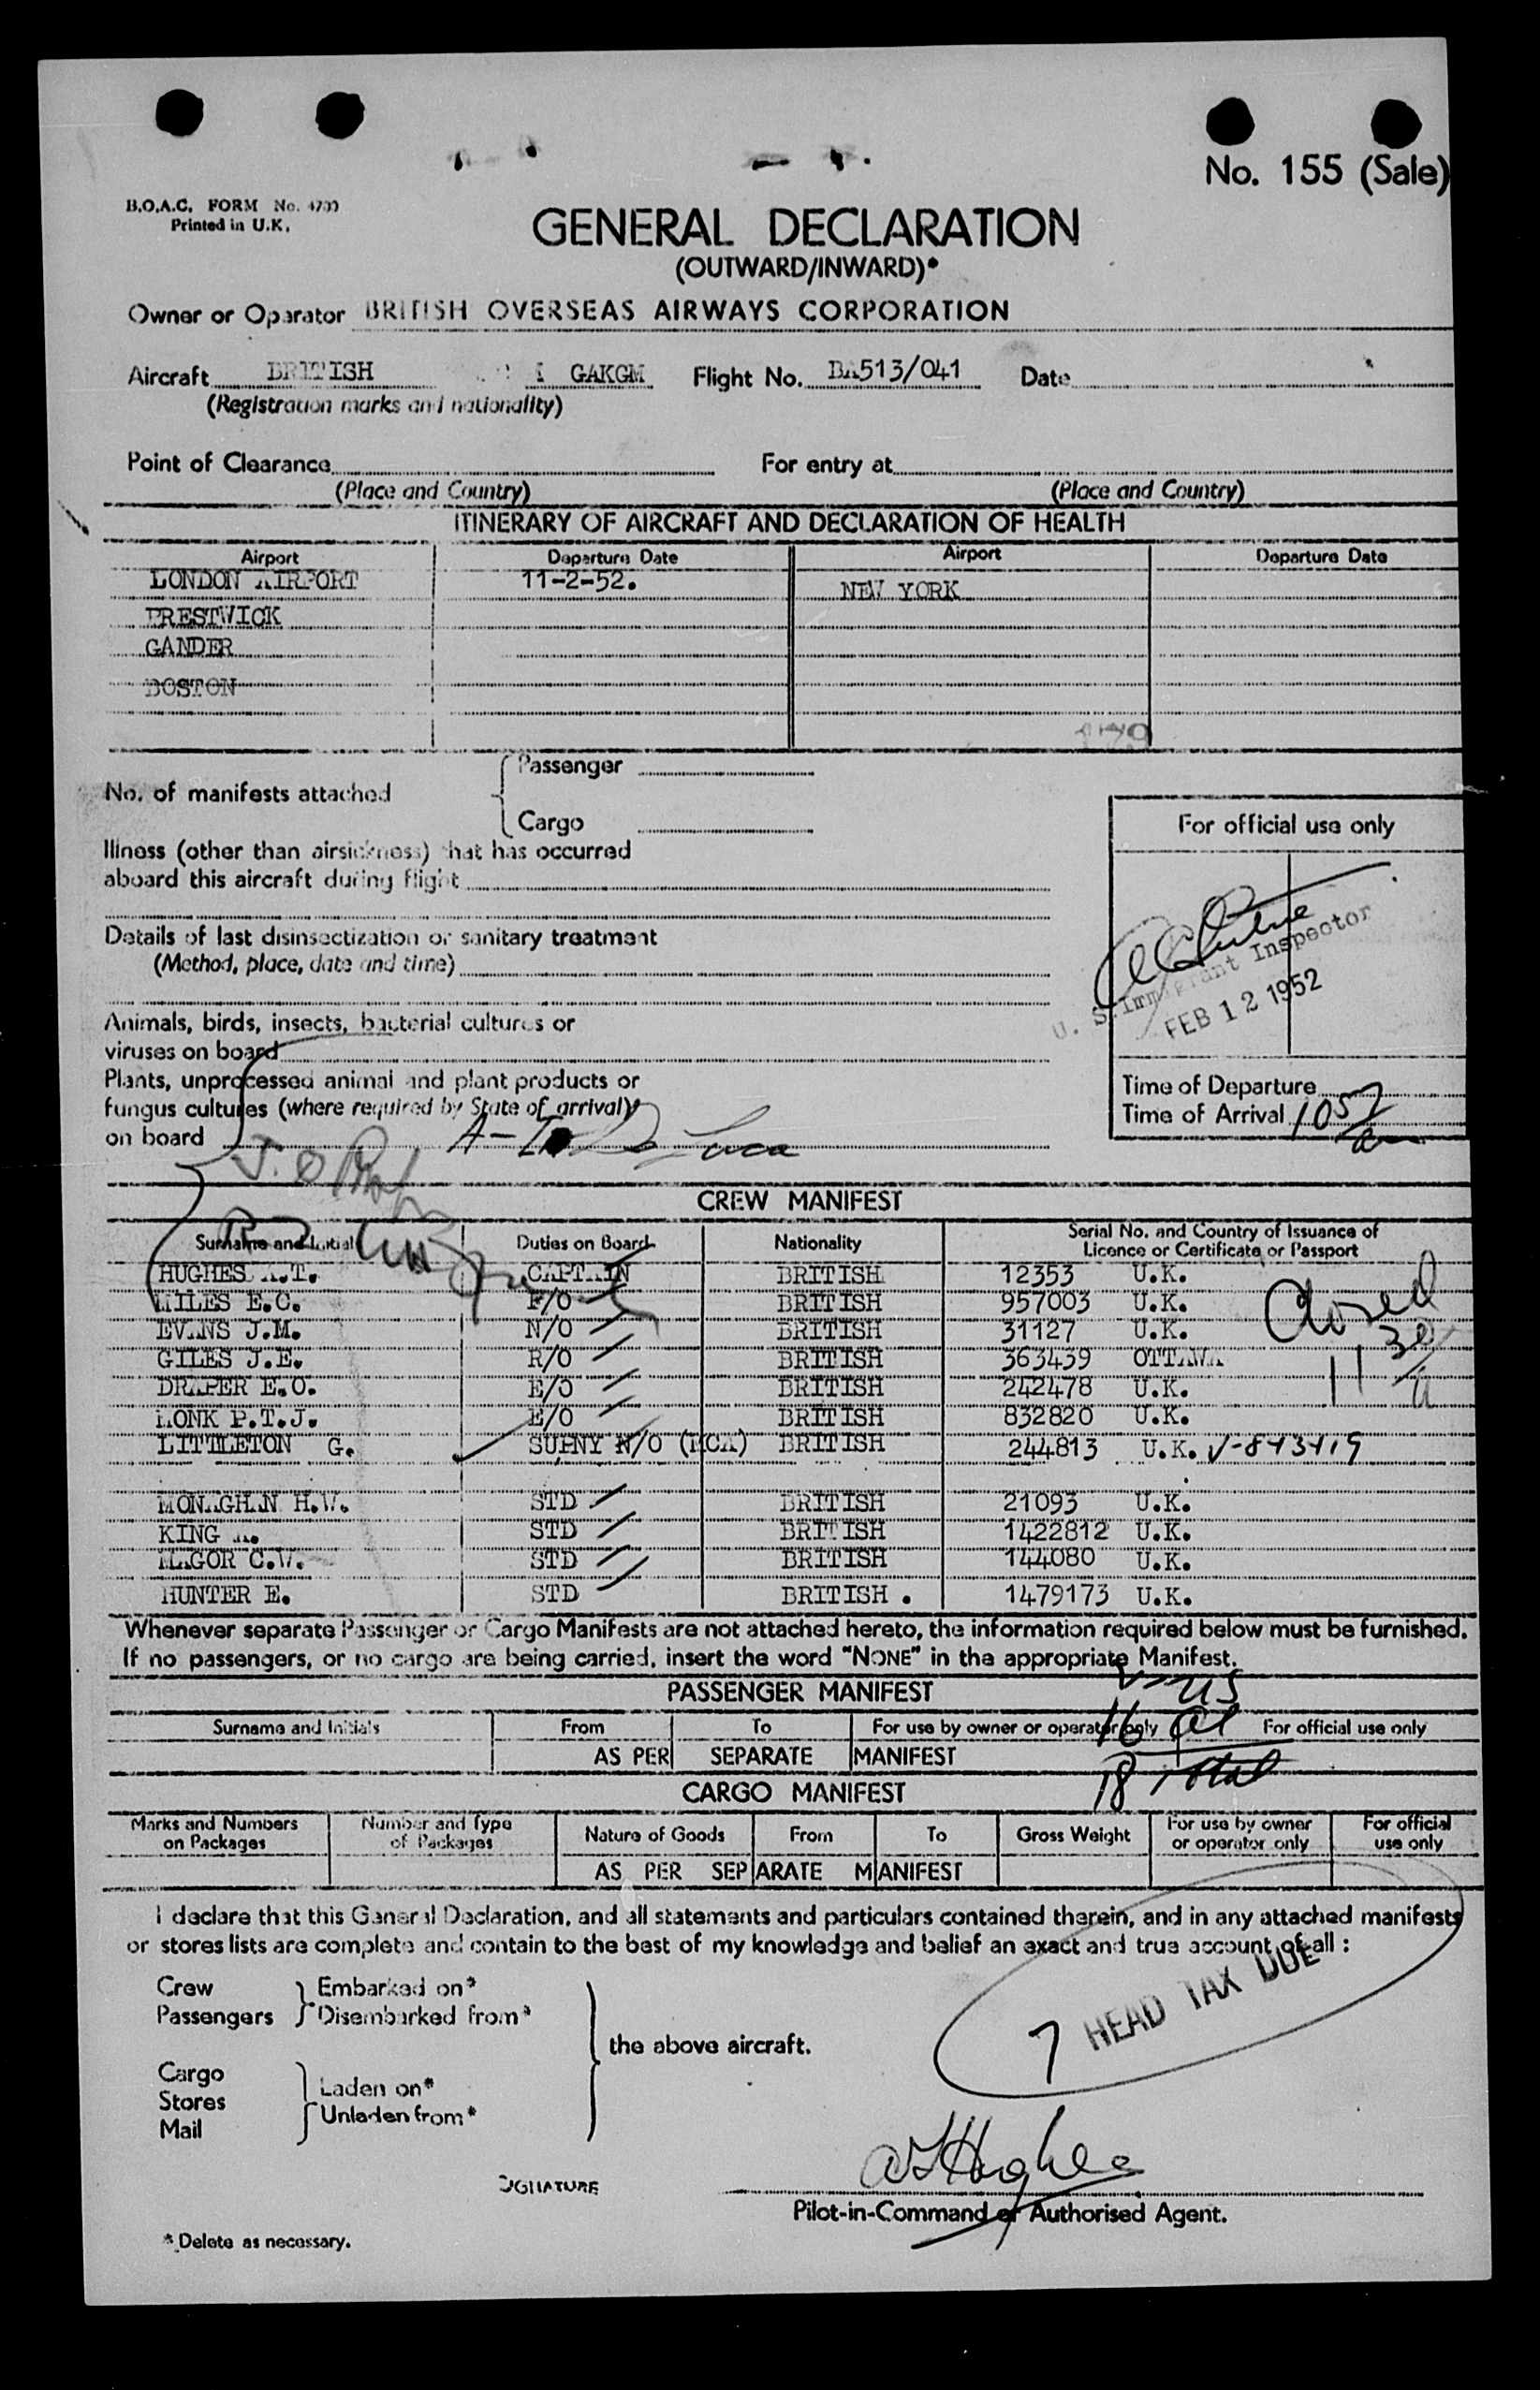 No. 155 (Sale)
B.O.A.C. FORM No. 4700
Printed in U.K.
GENERAL DECLARATION
(OUTWARD/INWARD)*
Owner or Operator BRITISH OVERSEAS AIRWAYS CORPORATION
Aircraft BRITISH GAKGM Flight No. BA513/041 Date
(Registration marks and nationality)
Point of Clearance For entry at
(Place and Country) (Place and Country)
ITINERARY OF AIRCRAFT AND DECLARATION OF HEALTH
Airport Departure Date Airport Departure Date
LONDON AIRPORT 11-2-52. NEW YORK
PRESTWICK
GANDER
BOSTON
179
No. of manifests attached { Passenger
Cargo
For official use only
Illness (other than airsickness) that has occurred
aboard this aircraft during flight
Details of last disinsectization or sanitary treatment
(Method, place, date and time)
U. S. Immigrant Inspector
FEB 12 1952
Animals, birds, insects, bacterial cultures or
viruses on board
Plants, unprocessed animal and plant products or
fungus cultures (where required by State of arrival)
on board
Time of Departure
Time of Arrival 1057
am
CREW MANIFEST
Surname and Initial Duties on Board Nationality Serial No. and Country of Issuance of
Licence or Certificate or Passport
HUGHES A.T. CAPTAIN BRITISH 12353 U.K.
MILES E.C. F/O BRITISH 957003 U.K.
EVANS J.M. N/O BRITISH 31127 U.K.
GILES J.E. R/O BRITISH 363439 OTTAWA
DRAPER E.O. E/O BRITISH 242478 U.K.
LONK P.T.J. E/O BRITISH 832820 U.K.
LITTLETON G. SUPNY N/O (MCA) BRITISH 244813 U.K. V-843419
Closed
11 30
MONAGHAN H.W. STD BRITISH 21093 U.K.
KING A. STD BRITISH 1422812 U.K.
MAGOR C.W. STD BRITISH 144080 U.K.
HUNTER E. STD BRITISH. 1479173 U.K.
Whenever separate Passenger or Cargo Manifests are not attached hereto, the information required below must be furnished.
If no passengers, or no cargo are being carried, insert the word "NONE" in the appropriate Manifest.
PASSENGER MANIFEST
US
Surname and Initials From To For use by owner or operator only For official use only
16 al
AS PER SEPARATE MANIFEST
18 total
CARGO MANIFEST
Marks and Numbers on Packages Number and Type of Packages Nature of Goods From To Gross Weight For use by owner or operator only For official use only
AS PER SEPARATE MANIFEST
I declare that this General Declaration, and all statements and particulars contained therein, and in any attached manifests
or stores lists are complete and contain to the best of my knowledge and belief an exact and true account of all :
Crew } Embarked on*
Passengers Disembarked from*
the above aircraft.
Cargo
Stores Laden on*
Mail Unladen from*
7 HEAD TAX DUE
SIGNATURE ATHughes
Pilot-in-Command or Authorised Agent.
* Delete as necessary.